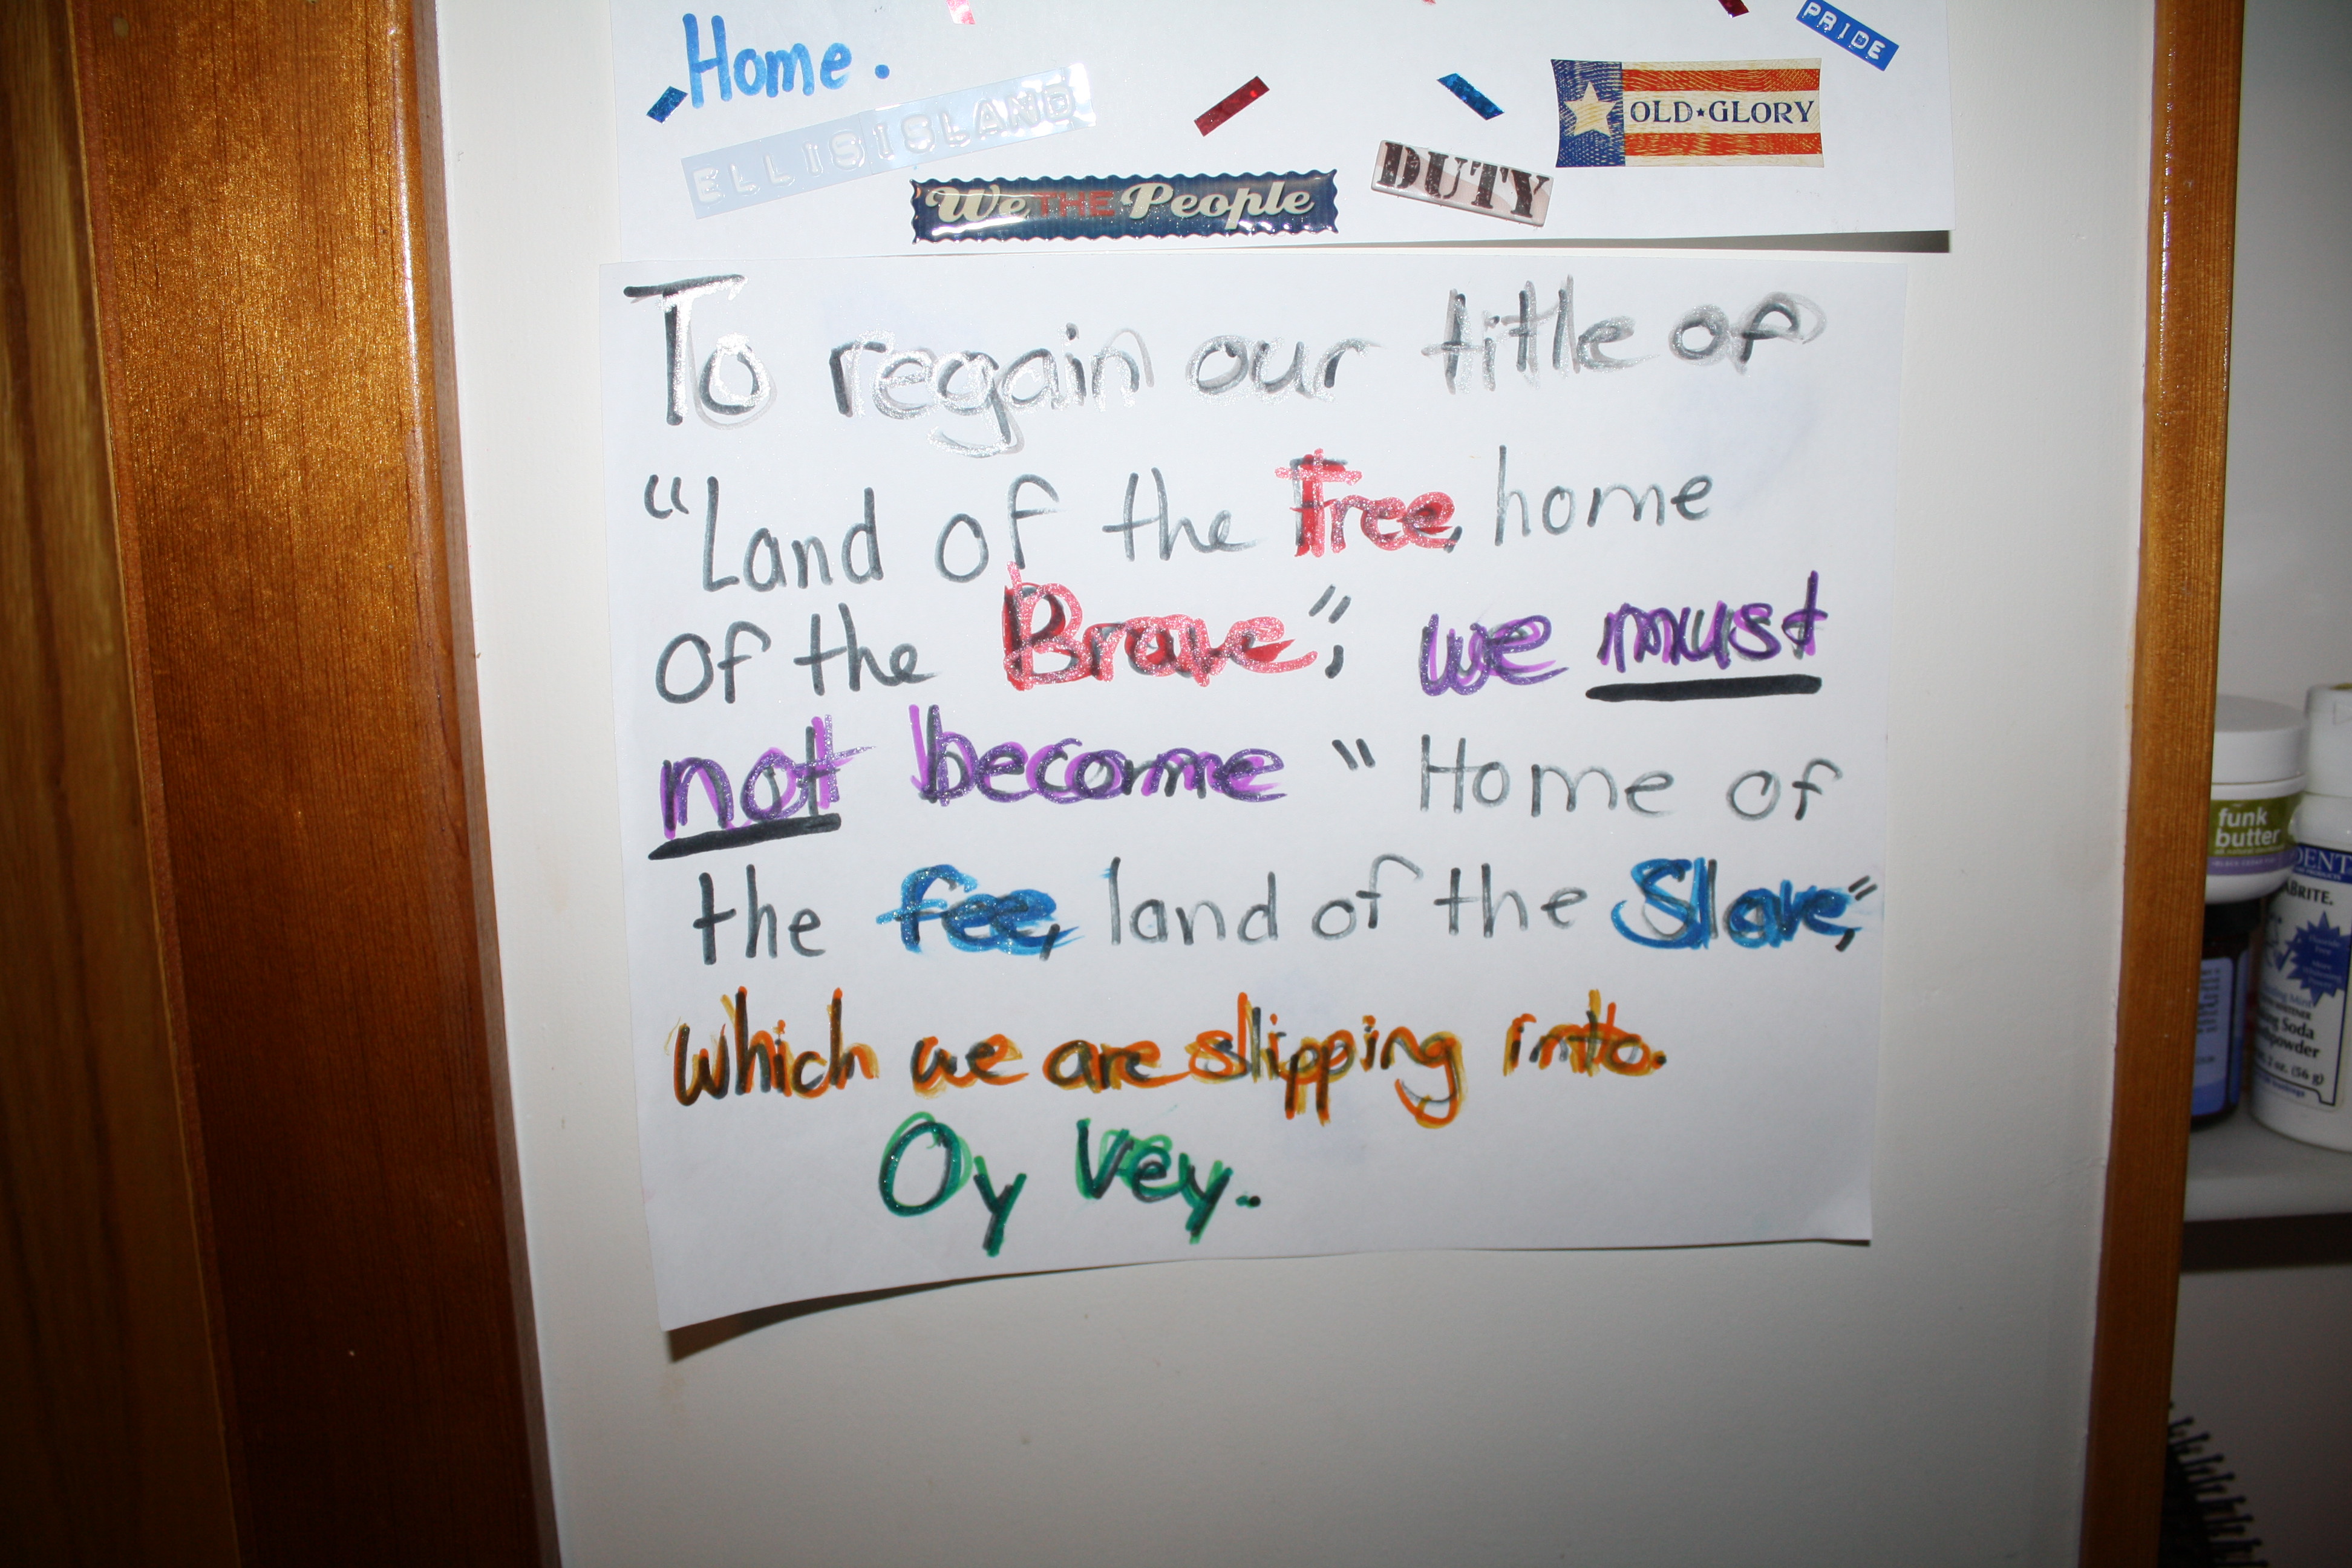 Home.
PRIDE
ELLIS ISLAND
OLD★GLORY
DUTY
We THE People
To regain our title of
"Land of the Free, home
of the Brave", we must
not become "Home of
the fee, land of the Slave,"
which we are slipping into.
Oy Vey.
funk
butter
DENT
ABRITE.
Soda
powder
2 oz. (56 g)